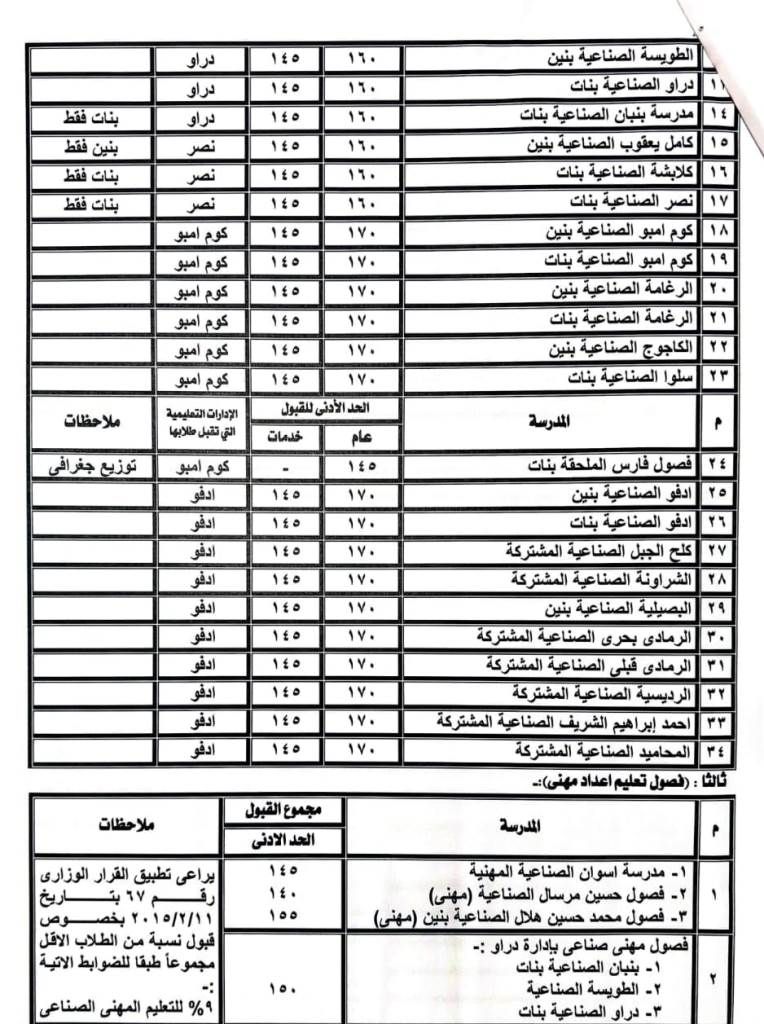 الطويسة الصناعية بنين ١٦٠ ١٤٥ دراو
١١ دراو الصناعية بنات ١٦٠ ١٤٥ دراو
١٤ مدرسة بنبان الصناعية بنات ١٦٠ ١٤٥ دراو بنات فقط
١٥ كامل يعقوب الصناعية بنين ١٦٠ ١٤٥ نصر بنين فقط
١٦ كلابشة الصناعية بنات ١٦٠ ١٤٥ نصر بنات فقط
١٧ نصر الصناعية بنات ١٦٠ ١٤٥ نصر بنات فقط
١٨ كوم امبو الصناعية بنين ١٧٠ ١٤٥ كوم امبو
١٩ كوم امبو الصناعية بنات ١٧٠ ١٤٥ كوم امبو
٢٠ الرغامة الصناعية بنين ١٧٠ ١٤٥ كوم امبو
٢١ الرغامة الصناعية بنات ١٧٠ ١٤٥ كوم امبو
٢٢ الكاجوج الصناعية بنين ١٧٠ ١٤٥ كوم امبو
٢٣ سلوا الصناعية بنات ١٧٠ ١٤٥ كوم امبو
م المدرسة الحد الأدنى للقبول الإدارات التعليمية التي تقبل طلابها ملاحظات
عام خدمات
٢٤ فصول فارس الملحقة بنات ١٤٥ - كوم امبو توزيع جغرافى
٢٥ ادفو الصناعية بنين ١٧٠ ١٤٥ ادفو
٢٦ ادفو الصناعية بنات ١٧٠ ١٤٥ ادفو
٢٧ كلح الجبل الصناعية المشتركة ١٧٠ ١٤٥ ادفو
٢٨ الشراونة الصناعية المشتركة ١٧٠ ١٤٥ ادفو
٢٩ البصيلية الصناعية بنين ١٧٠ ١٤٥ ادفو
٣٠ الرمادى بحرى الصناعية المشتركة ١٧٠ ١٤٥ ادفو
٣١ الرمادى قبلى الصناعية المشتركة ١٧٠ ١٤٥ ادفو
٣٢ الرديسية الصناعية المشتركة ١٧٠ ١٤٥ ادفو
٣٣ احمد إبراهيم الشريف الصناعية المشتركة ١٧٠ ١٤٥ ادفو
٣٤ المحاميد الصناعية المشتركة ١٧٠ ١٤٥ ادفو
ثالثا : (فصول تعليم اعداد مهنى):-
م المدرسة مجموع القبول ملاحظات
الحد الادنى
١ ١- مدرسة اسوان الصناعية المهنية ١٤٥ يراعى تطبيق القرار الوزارى
٢- فصول حسين مرسال الصناعية (مهنى) ١٤٠ رقم ٦٧ بتاريخ
٣- فصول محمد حسين هلال الصناعية بنين (مهنى) ١٥٥ ٢٠١٥/٢/١١ بخصوص
٢ فصول مهنى صناعى بإدارة دراو :- قبول نسبة من الطلاب الاقل
١- بنبان الصناعية بنات مجموعاً طبقا للضوابط الاتية
٢- الطويسة الصناعية ١٥٠ :-
٣- دراو الصناعية بنات ٩% للتعليم المهنى الصناعى